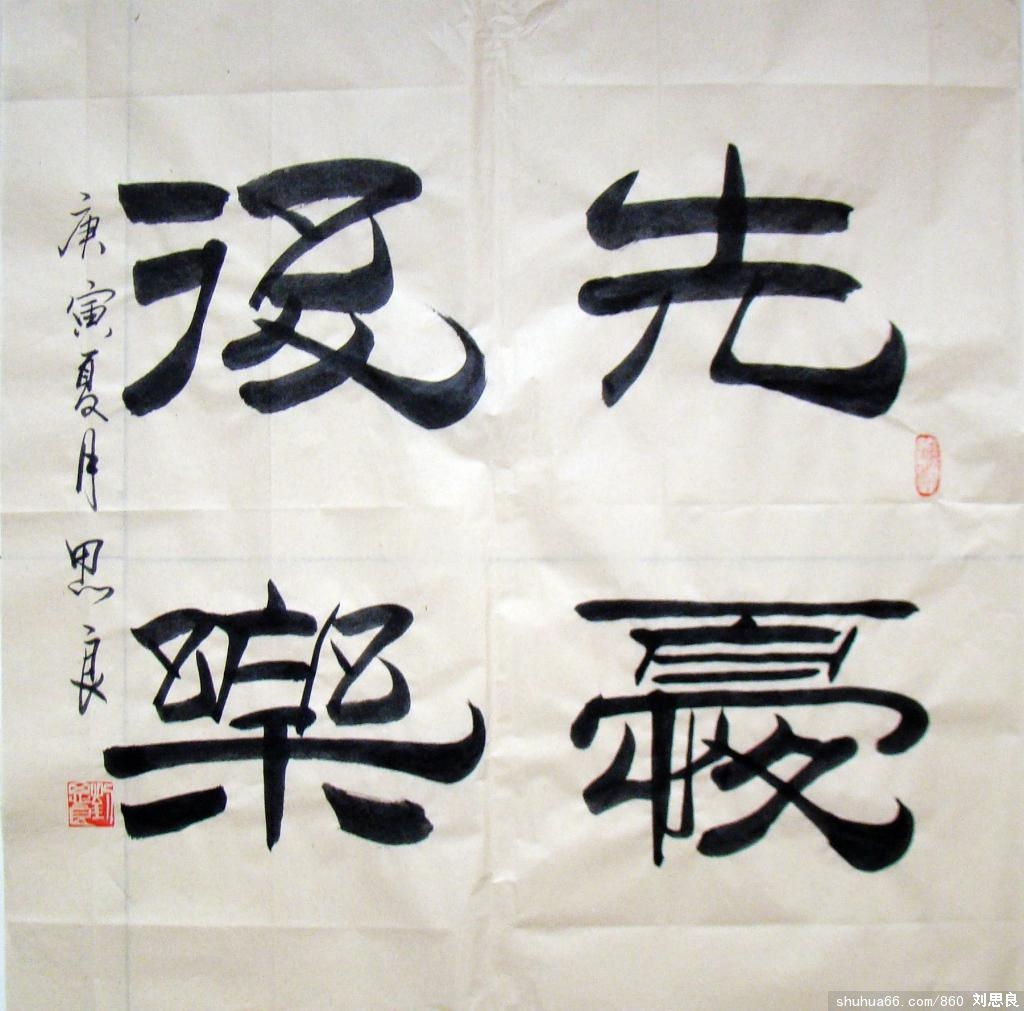 先憂
後樂
庚寅夏月思良
劉思良
shuhua66.com/860 刘思良